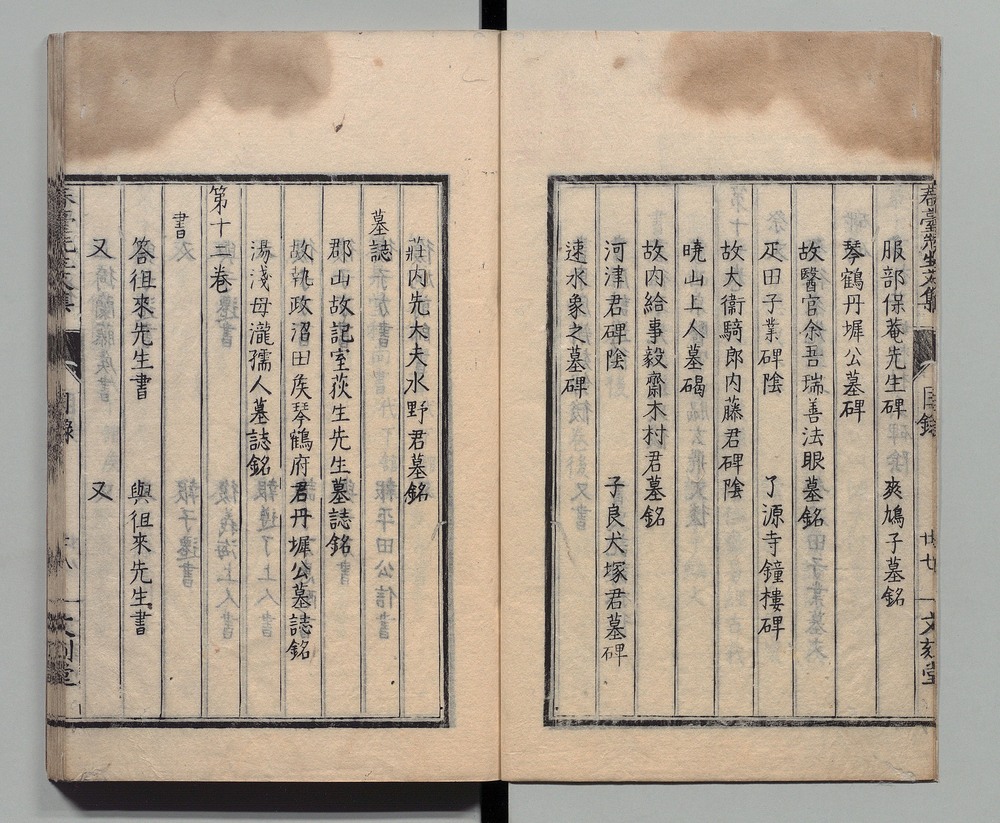 春臺先生文集
目錄
廿七
文刻堂
服部保菴先生碑 爽鳩子墓銘
琴鶴丹墀公墓碑
故醫官余吾瑞善法眼墓銘
疋田子業碑陰 了源寺鐘樓碑
故大衞騎郎內藤君碑陰
曉山上人墓碣
故內給事毅齋木村君墓銘
河津君碑陰 子良犬塚君墓碑
速水象之墓碑
莊內先大夫水野君墓銘
墓誌
郡山故記室荻生先生墓誌銘
故執政沼田矦琴鶴府君丹墀公墓誌銘
湯淺母瀧孺人墓誌銘
第十二卷
書
答徂來先生書 與徂來先生書
又 又
春臺先生文集
目錄
廿八
文刻堂